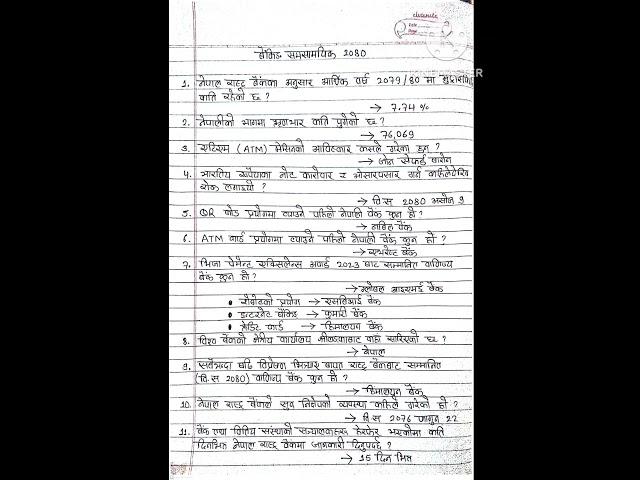 classmate
Date
Page
बैंकिङ समसामयिक 2080
1. नेपाल राष्ट्र बैंकका अनुसार आर्थिक वर्ष 2079/80 मा मुद्रास्फिति
कति रहेको छ ?
→ 7.74 %
2. नेपालीको भागमा ऋणभार कति पुगेको छ ?
→ 76,069
3. एटिएम (ATM) मेसिनको आविष्कार कसले गरेका हुन् ?
→ जोन सेफर्ड बारोन
4. भारतिय रुपैयाका नोट कारोवार र ओसारपसार गर्न कहिलेदेखि
रोक लगाइयो ?
→ वि.स 2080 असोज 9
5. QR कोड प्रयोगमा ल्याउने पहिलो नेपाली बैंक कुन हो ?
→ नबिल बैंक
6. ATM कार्ड प्रयोगमा ल्याउने पहिलो नेपाली बैंक कुन हो ?
→ एभरेष्ट बैंक
7. भिजा पेमेन्ट एक्सिलेन्स अवार्ड 2023 बाट सम्मानित वाणिज्य
बैंक कुन हो ?
→ ग्लोबल आइएमई बैंक
• प्रयोग → एसबिआई बैंक
• इन्टरनेट बैंकिङ → कुमारी बैंक
• क्रेडिट कार्ड → हिमालयन बैंक
8. विश्व बैंकको क्षेत्रीय कार्यालय श्रीलङ्काबाट कहाँ सारिएको छ ?
→ नेपाल
9. सबैभन्दा बढि विप्रेषण भित्र्याए बापत राष्ट्र बैंकबाट सम्मानित
(वि.स 2080) वाणिज्य बैंक कुन हो ?
→ हिमालयन बैंक
10. नेपाल राष्ट्र बैंकले सुन निक्षेपको व्यवस्था कहिले गरेको हो ?
→ वि.स 2076 फागुन 22
11. बैंक तथा वित्तिय संस्थाको सञ्चालकहरू हेरफेर भएकोमा कति
दिनभित्र नेपाल राष्ट्र बैंकमा जानकारी दिनुपर्दछ ?
→ 15 दिन भित्र